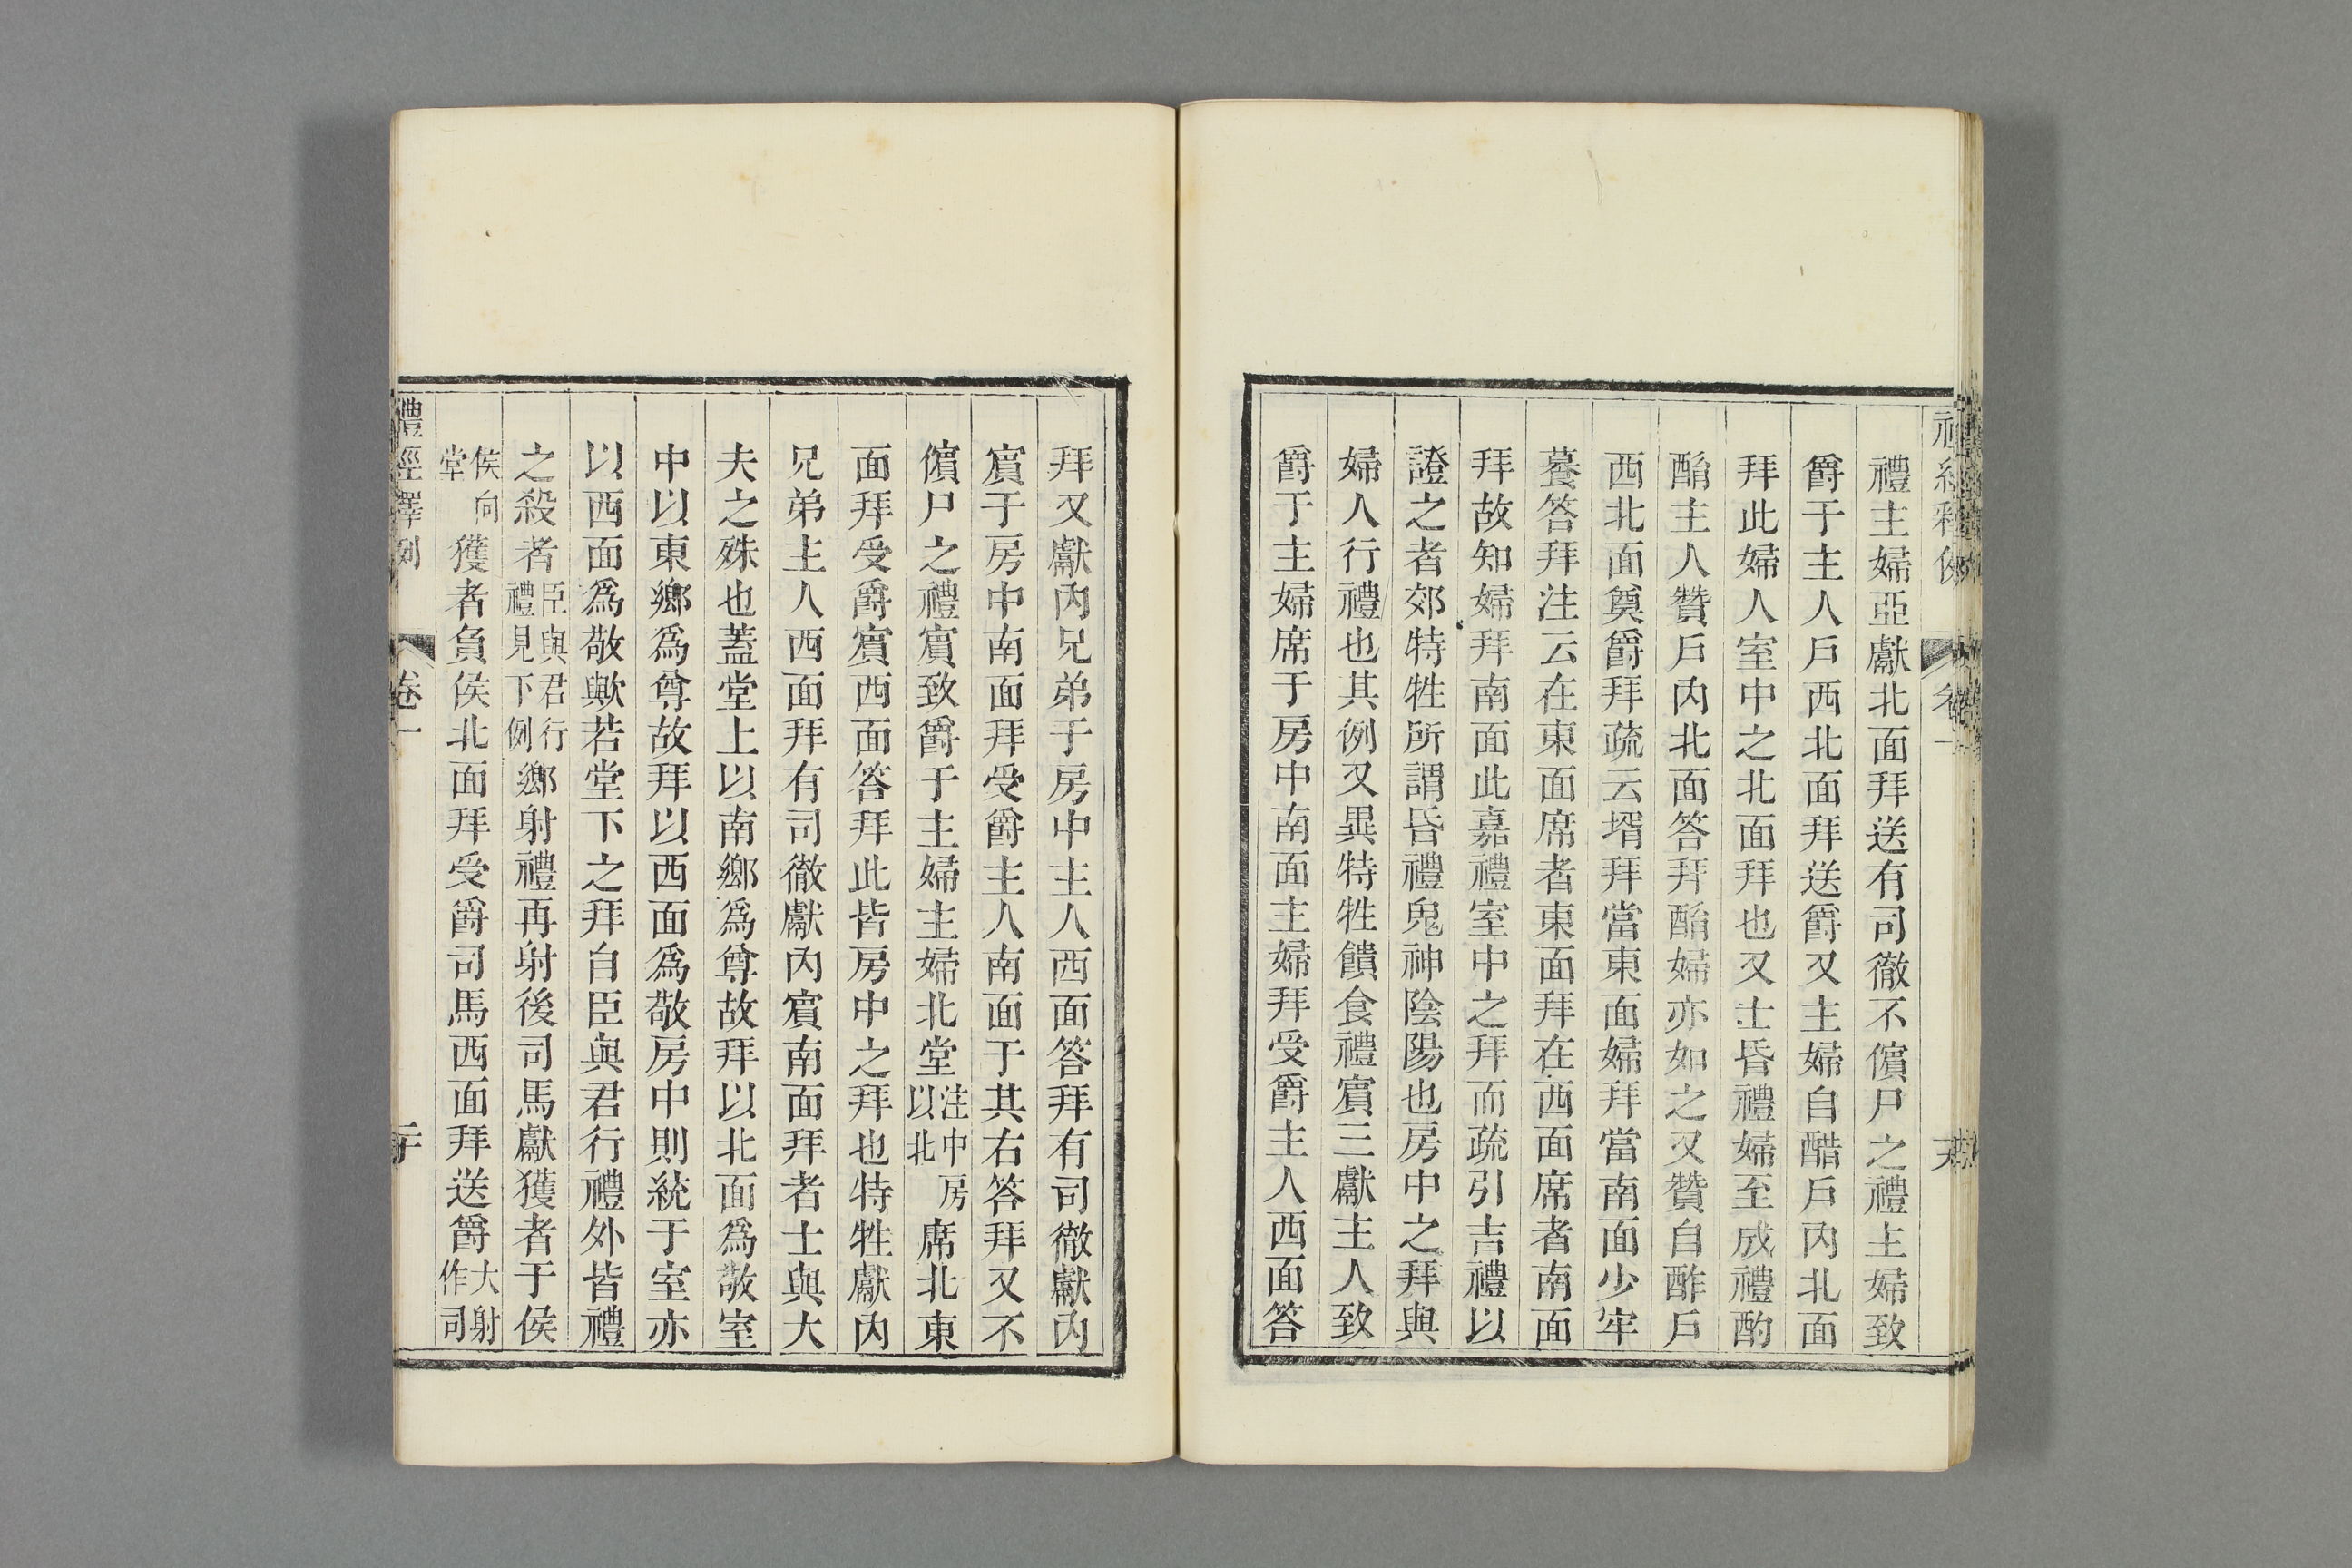 禮主婦亞獻北面拜送有司徹不儐尸之禮主婦致
爵于主人戶西北面拜送爵又主婦自醋戶內北面
拜此婦人室中之北面拜也又士昏禮婦至成禮酌
酳主人贊戶內北面答拜酳婦亦如之又贊自酢戶
西北面奠爵拜疏云壻拜當東面婦拜當南面少牢
䭆答拜注云在東面席者東面拜在西面席者南面
拜故知婦拜南面此嘉禮室中之拜而疏引吉禮以
證之者郊特牲所謂昏禮鬼神陰陽也房中之拜與
婦人行禮也其例又異特牲饋食禮賓三獻主人致
爵于主婦席于房中南面主婦拜受爵主人西面答
拜又獻內兄弟于房中主人西面答拜有司徹獻內
賓于房中南面拜受爵主人南面于其右答拜又不
儐尸之禮賓致爵于主婦主婦北堂注中房以北席北東
面拜受爵賓西面答拜此皆房中之拜也特牲獻內
兄弟主人西面拜有司徹獻內賓南面拜者士與大
夫之殊也蓋堂上以南鄉爲尊故拜以北面爲敬室
中以東鄉爲尊故拜以西面爲敬房中則統于室亦
以西面爲敬歟若堂下之拜自臣與君行禮外皆禮
之殺者臣與君行禮見下例鄉射禮再射後司馬獻獲者于侯
侯向堂獲者負侯北面拜受爵司馬西面拜送爵大射作司
禮經釋例
卷一
二十